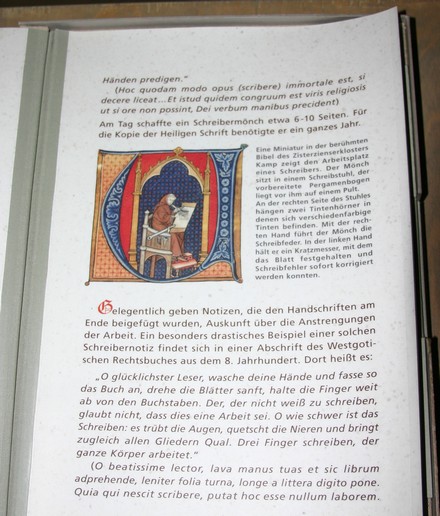 Händen predigen."
(Hoc quodam modo opus (scribere) immortale est, si
decere liceat...Et istud quidem congruum est viris religiosis
ut si ore non possint, Dei verbum manibus precident)
Am Tag schaffte ein Schreibermönch etwa 6-10 Seiten. Für
die Kopie der Heiligen Schrift benötigte er ein ganzes Jahr.
Eine Miniatur in der berühmten
Bibel des Zisterzienserklosters
Kamp zeigt den Arbeitsplatz
eines Schreibers. Der Mönch
sitzt in einem Schreibstuhl, der
vorbereitete Pergamenbogen
liegt vor ihm auf einem Pult.
An der rechten Seite des Stuhles
hängen zwei Tintenhörner in
denen sich verschiedenfarbige
Tinten befinden. Mit der rech-
ten Hand führt der Mönch die
Schreibfeder. In der linken Hand
hält er ein Kratzmesser, mit dem
das Blatt festgehalten und
Schreibfehler sofort korrigiert
werden konnten.
Gelegentlich geben Notizen, die den Handschriften am
Ende beigefügt wurden, Auskunft über die Anstrengungen
der Arbeit. Ein besonders drastisches Beispiel einer solchen
Schreibernotiz findet sich in einer Abschrift des Westgoti-
schen Rechtsbuches aus dem 8. Jahrhundert. Dort heißt es:
„O glücklichster Leser, wasche deine Hände und fasse so
das Buch an, drehe die Blätter sanft, halte die Finger weit
ab von den Buchstaben. Der, der nicht weiß zu schreiben,
glaubt nicht, dass dies eine Arbeit sei. O wie schwer ist das
Schreiben: es trübt die Augen, quetscht die Nieren und bringt
zugleich allen Gliedern Qual. Drei Finger schreiben, der
ganze Körper arbeitet."
(O beatissime lector, lava manus tuas et sic librum
adprehende, leniter folia turna, longe a littera digito pone.
Quia qui nescit scribere, putat hoc esse nullum laborem.